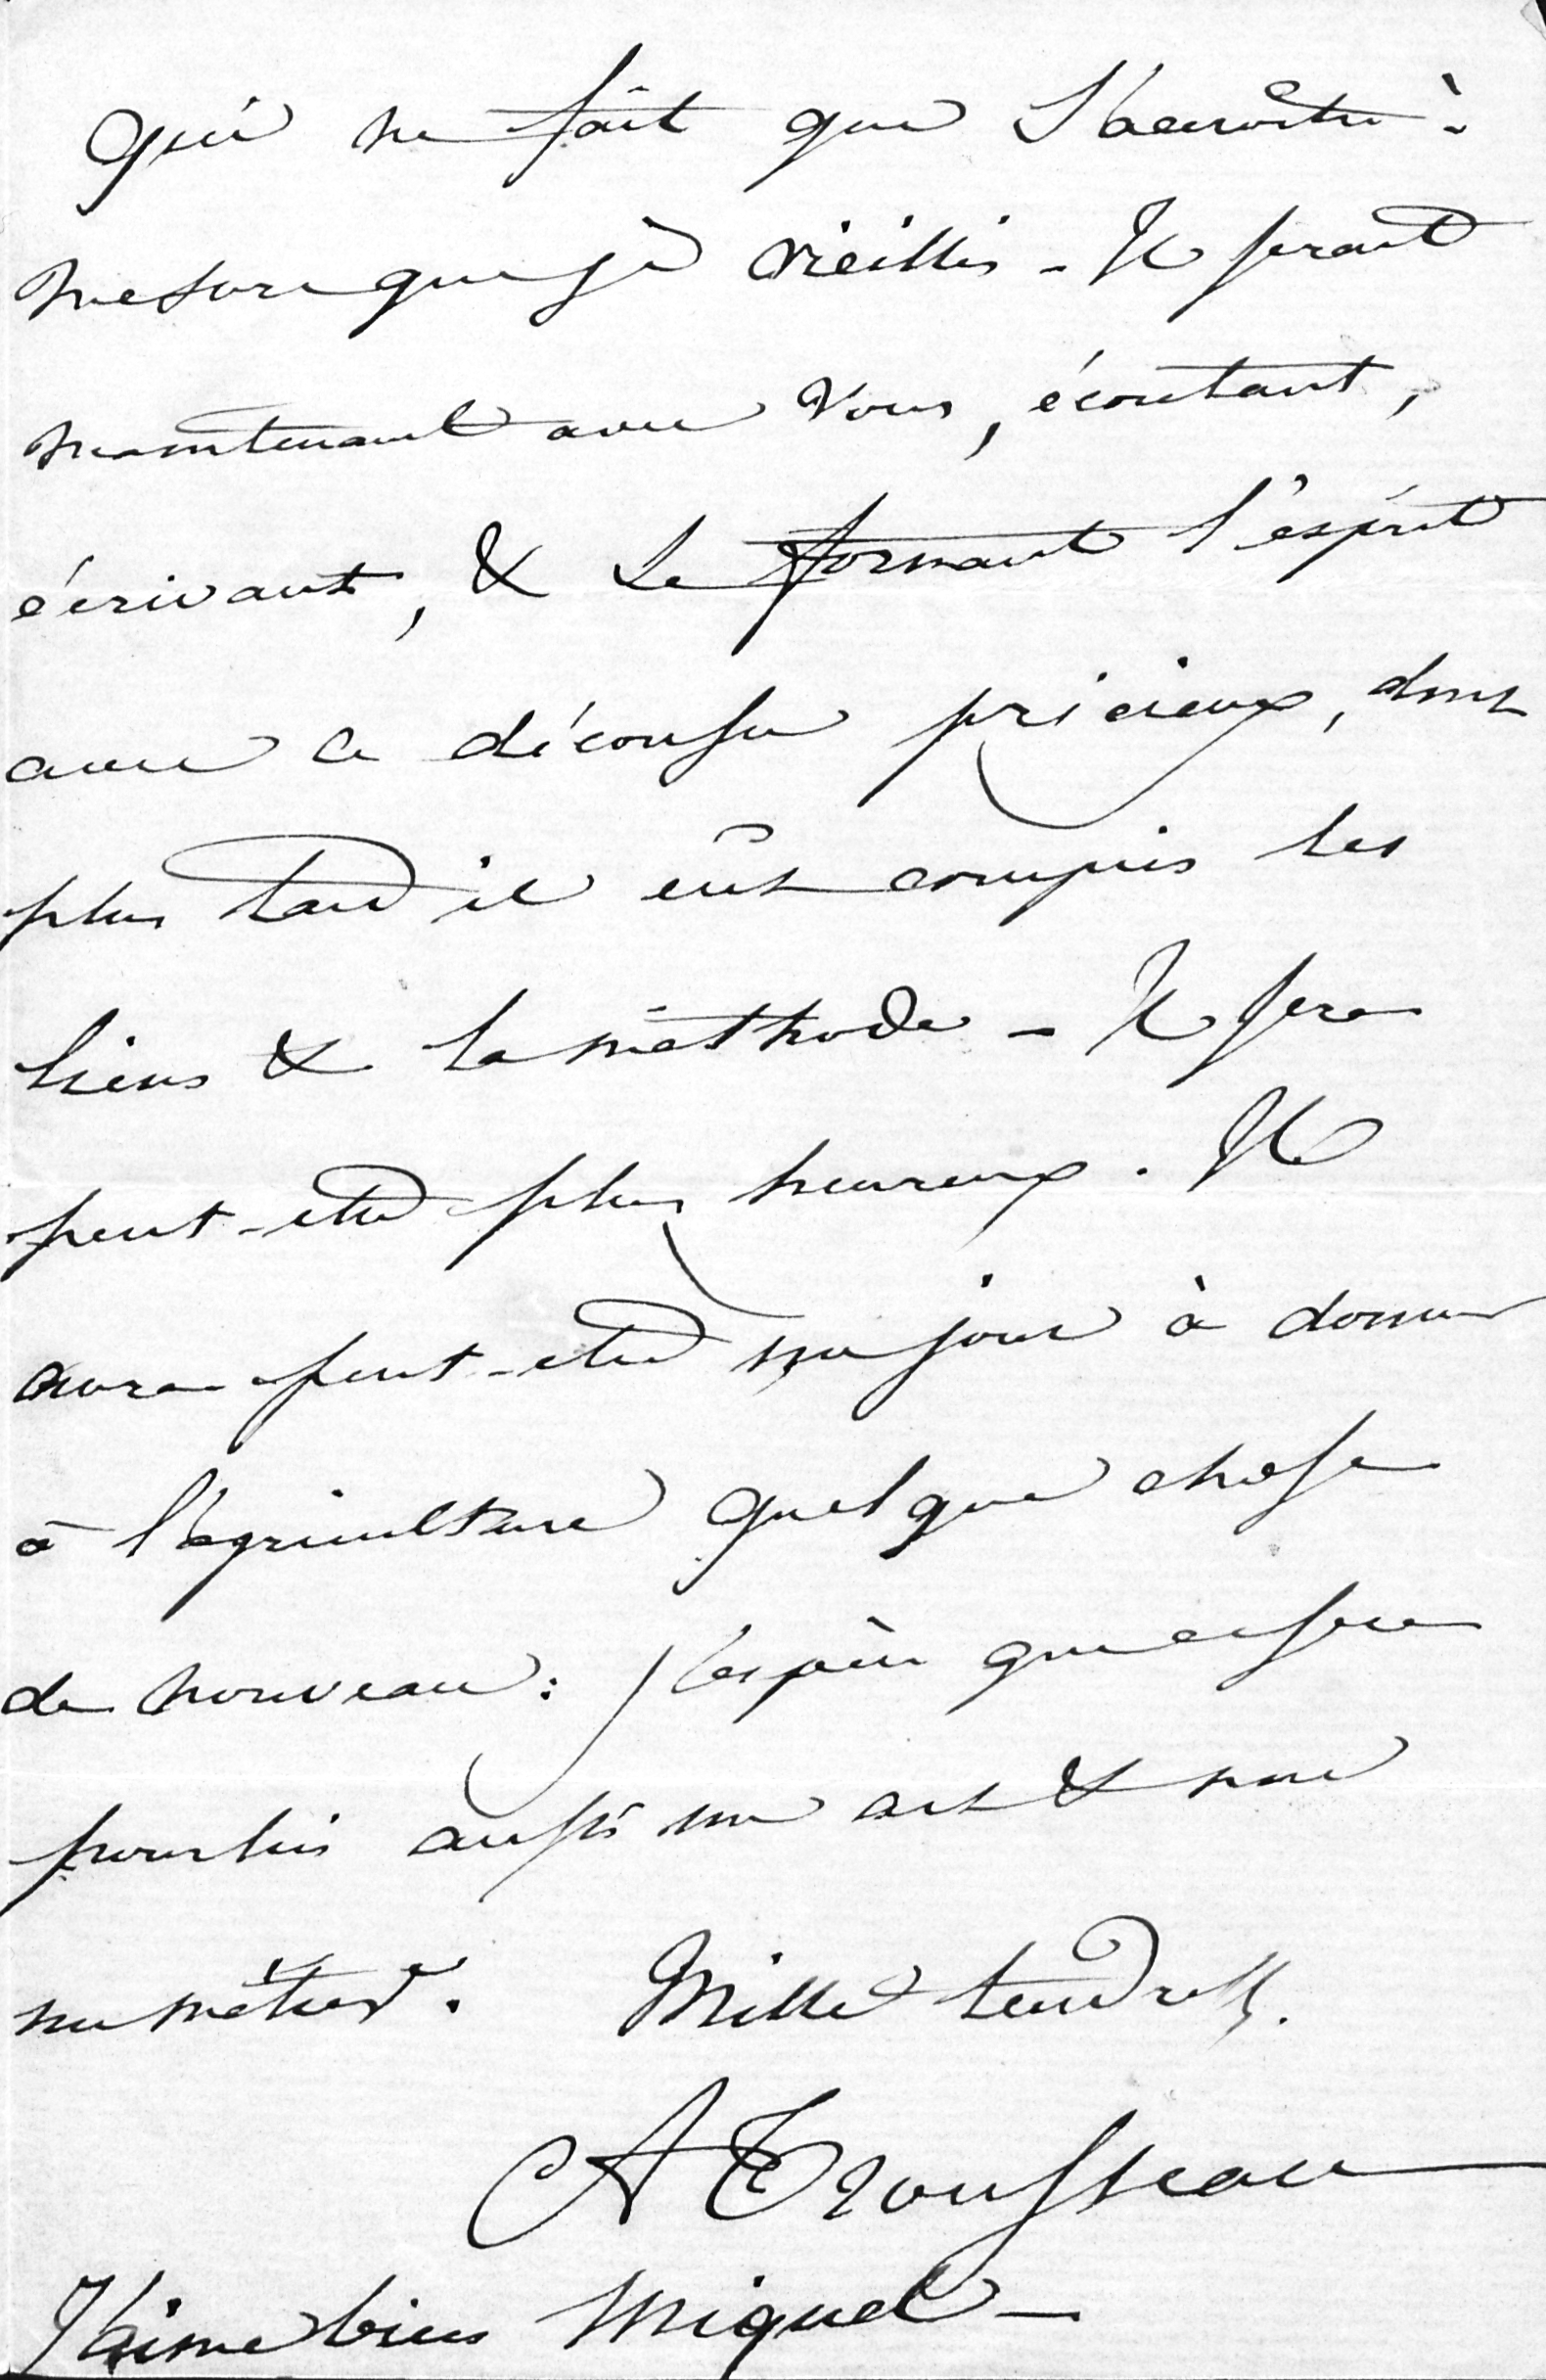 qui ne fait que s'accroître à
mesure que je vieillis - Il serait
maintenant avec vous, écoutant,
écrivant, & se formant l'esprit
avec ce décousu précieux, dont
plus tard il eût compris les
liens & la méthode - Il sera
peut-etre plus heureux. Il
aura peut-etre un jour à donner
à l'agriculture quelque chose
de nouveau: j'espère que ce sera
pour lui aussi un art & non
un métier. Mille tendresses.
A Trousseau
J'aime bien Miquel -